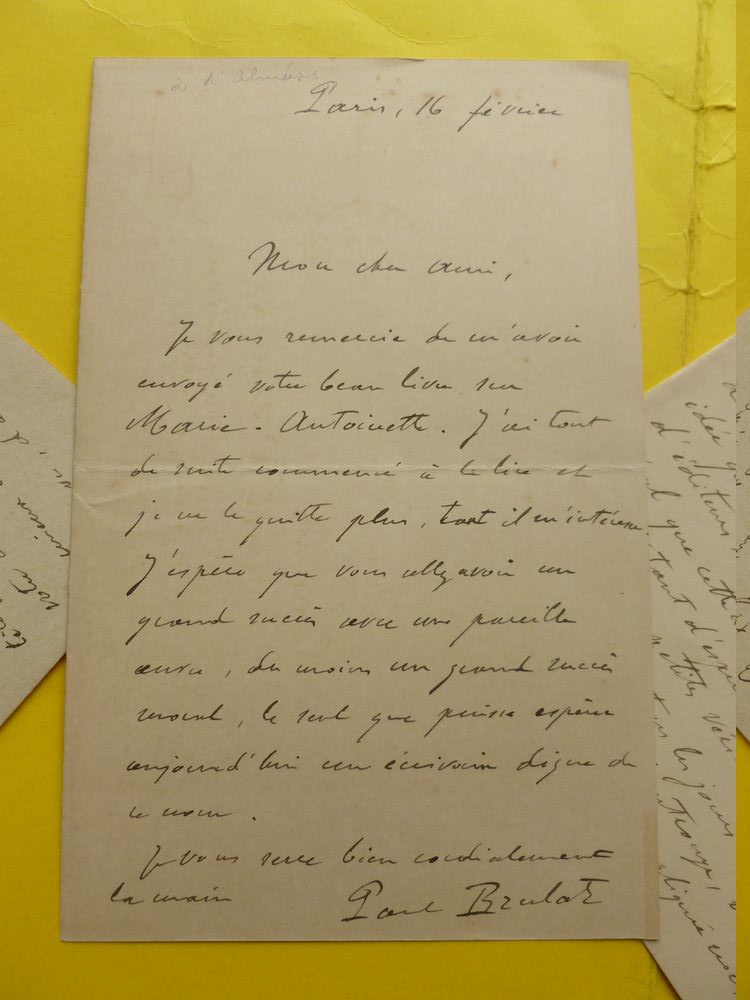 à d'Alméras
Paris, 16 février
Mon cher ami,
Je vous remercie de m'avoir
envoyé votre beau livre sur
Marie-Antoinette. J'ai tout
de suite commencé à le lire et
je ne le quitte plus, tant il m'intéresse.
J'espère que vous allez avoir un
grand succès avec une pareille
œuvre, du moins un grand succès
moral, le seul que puisse espérer
aujourd'hui un écrivain digne de
ce nom.
Je vous serre bien cordialement
la main Paul Brulat
idée
d'éditeurs
que cette
tant
petites
les jours